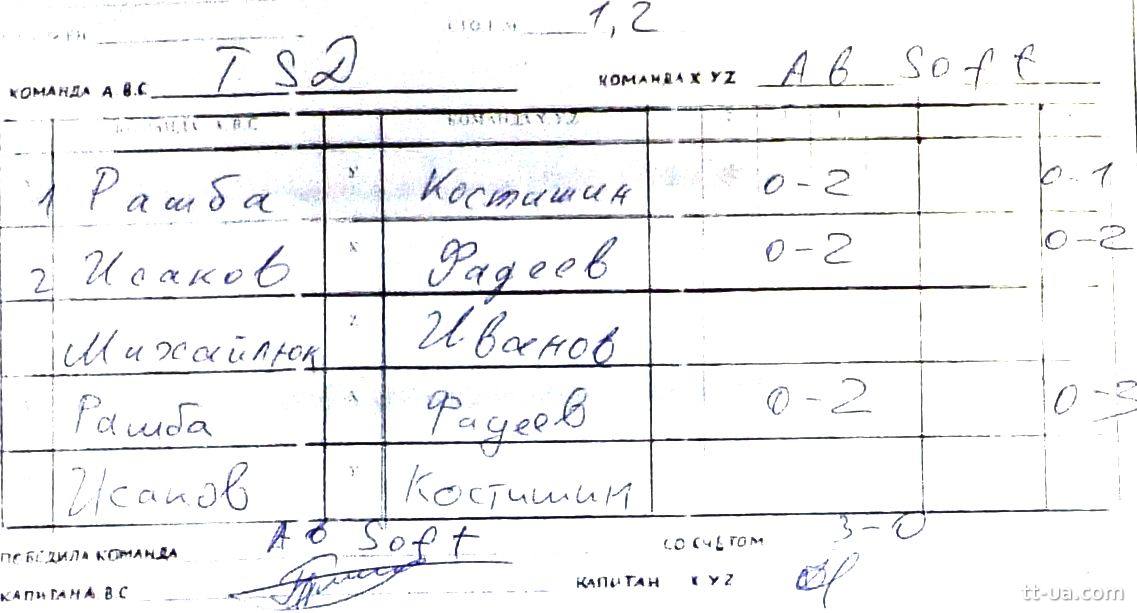 1,2
КОМАНДА А.В.С TSD КОМАНДА X YZ Ab Soft
КОМАНДА А.В.С КОМАНДА X Y Z
1 Рашба Y Костишин 0-2 0-1
2 Исаков X Фадеев 0-2 0-2
Михайлюк Z Иванов
Рашба X Фадеев 0-2 0-3
Исаков Y Костишин
ПОБЕДИЛА КОМАНДА Ab Soft СО СЧЕТОМ 3-0
КАПИТАН А В С КАПИТАН X Y Z
tt-ua.com